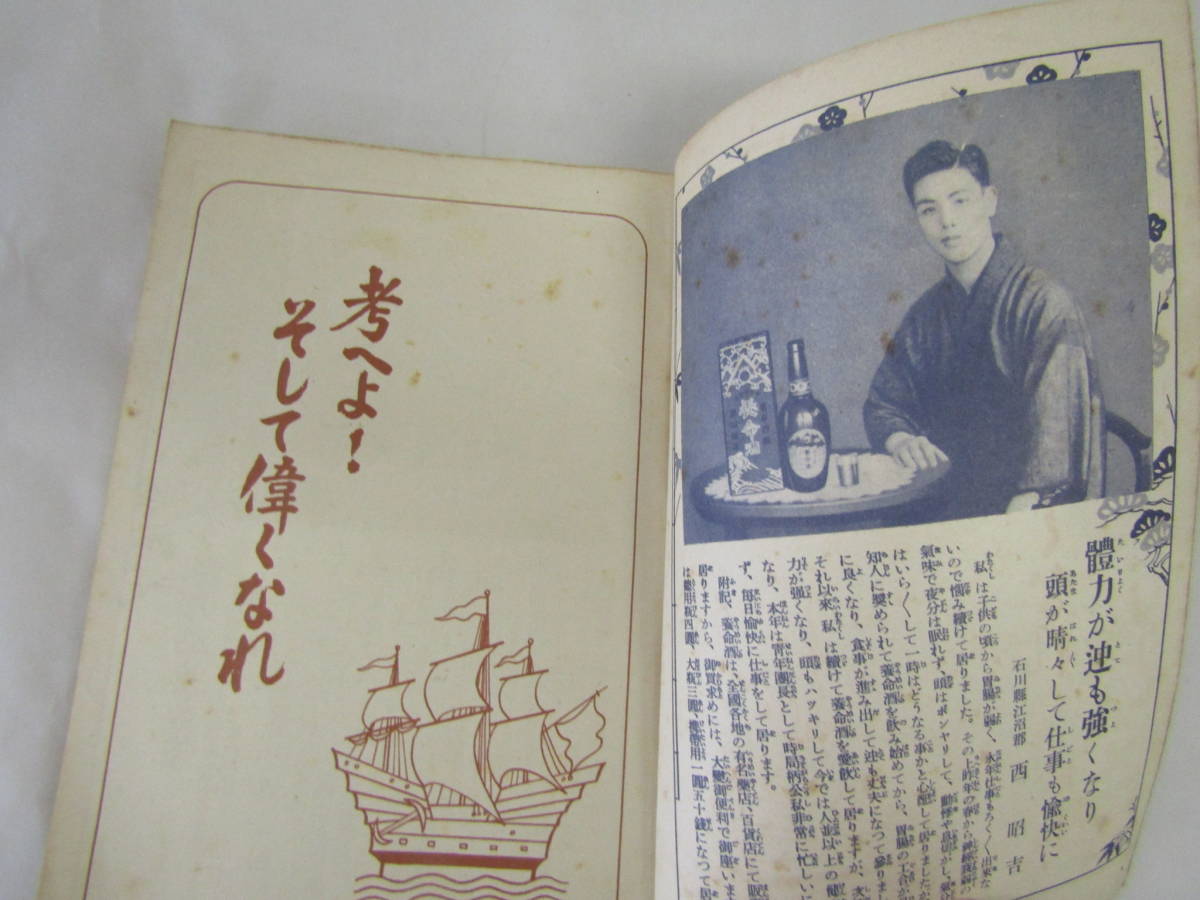 體力が迚も強くなり
頭が晴々して仕事も愉快に
石川縣江沼郡 西昭吉
私は子供の頃から胃腸が弱く、永年仕事もろく〳〵出來な
いので惱み續けて居りました。その上昨年の春から神經衰弱の
氣味で夜分は眠れず、頭はボンヤリして、動悸や息切がし、氣分
はいら〳〵して一時はどうなる事かと心配して居りましたが
知人に奬められて養命酒を飮み始めてから、胃腸の工合が
に良くなり、食事が進み出して迚も丈夫になつて參りまし
それ以來 私は續けて養命酒を愛飮して居りますが、次
力が強くなり、頭もハツキリして今では人並以上の健
なり、本年は靑年團長として時局柄公私非常に忙しいに
ず、毎日愉快に仕事をして居ります。
附記、養命酒は、全國各地の有名藥店、百貨店にて販
居りますから、御買求めには、大變御便利で御座いま
は德用瓶四圓、大瓶三圓、携帶用一圓五十錢になつて居
養命酒
考へよ!
そして偉くなれ